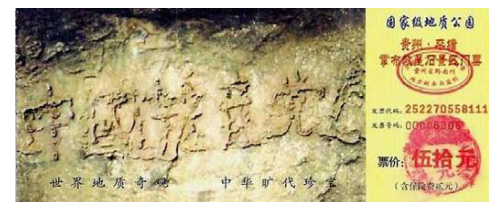 中國共產党
世界地质奇观 中华旷代珍宝
国家级地质公园
贵州·平塘
掌布
景区门票
发票代码: 252270558111
发票号码: 00006306
票价: 伍拾元
(含保险费贰元)